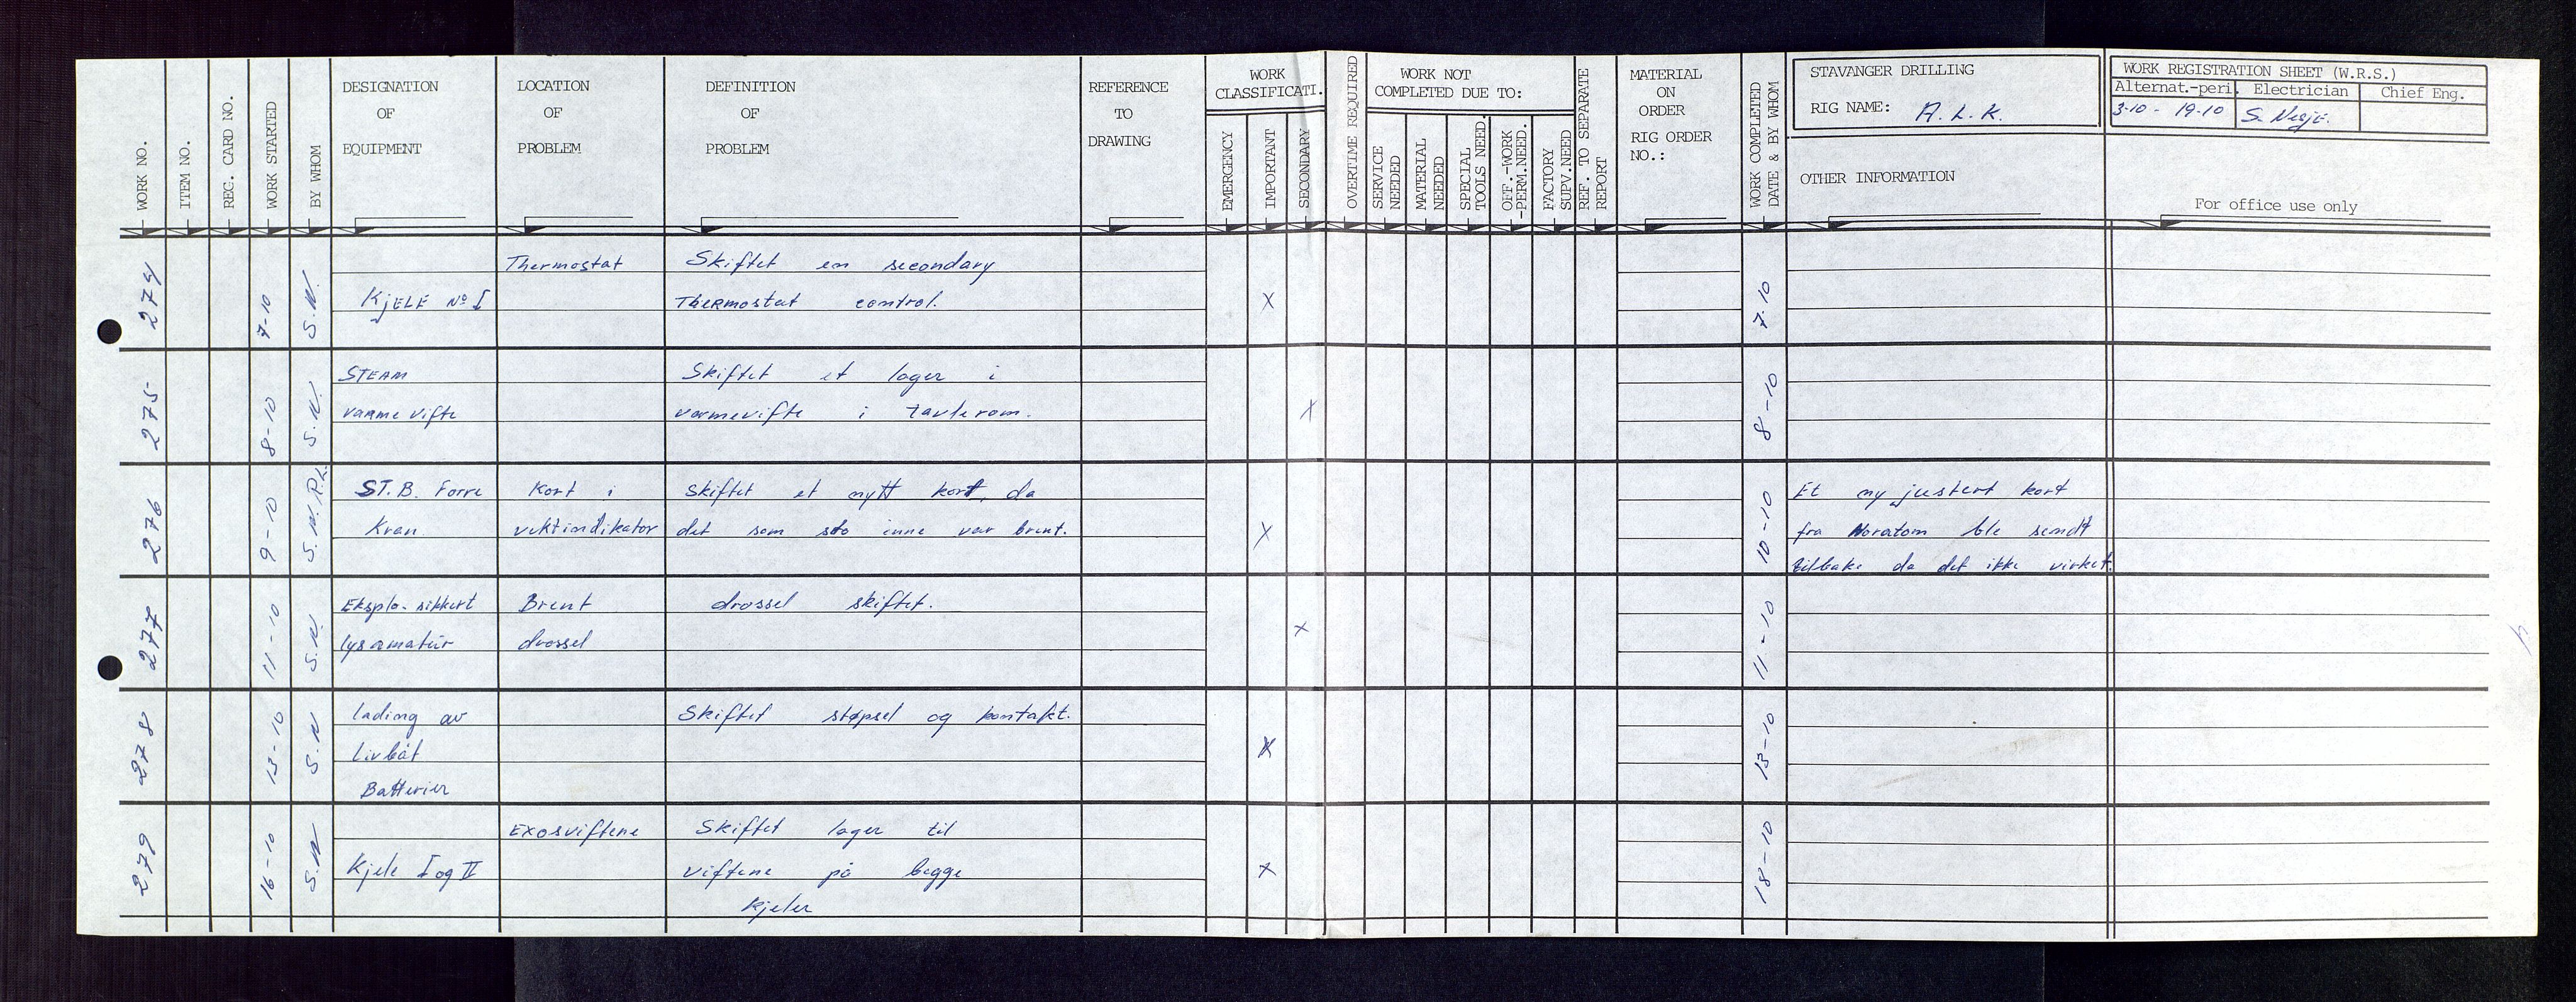 STAVANGER DRILLING
RIG NAME: A.L.K.
WORK REGISTRATION SHEET (W.R.S.)
Alternat.-peri. Electrician Chief Eng.
3-10 - 19-10 S.
WORK NO.
ITEM NO.
REG. CARD NO.
WORK STARTED
BY WHOM
DESIGNATION
OF
EQUIPMENT
LOCATION
OF
PROBLEM
DEFINITION
OF
PROBLEM
REFERENCE
TO
DRAWING
WORK
CLASSIFICATI.
EMERGENCY
IMPORTANT
SECONDARY
OVERTIME REQUIRED
WORK NOT
COMPLETED DUE TO:
SERVICE
NEEDED
MATERIAL
NEEDED
SPECIAL
TOOLS NEED.
OFF.-WORK
-PERM.NEED.
FACTORY
SUPV.NEED
REF. TO SEPARATE
REPORT
MATERIAL
ON
ORDER
RIG ORDER
NO.:
WORK COMPLETED
DATE & BY WHOM
OTHER INFORMATION
For office use only
274 7-10 S.N. Thermostat Skiftet en secondary
KJELE No I Thermostat control. X 7.10
275 8-10 S.N. STEAM Skiftet et lager i
varme vifte varmevifte i tavlerom. X 8-10
276 9-10 S.N. P.L. ST.B. Forre Kort i Skiftet et nytt kort, da Et ny justert kort
Kran vektindikator det som sto inne var brent. X 10-10 fra Noratom ble sendt
tilbake da det ikke virket.
277 11-10 S.N. Eksplo. sikkert Brent drossel skiftet.
lysarmatur drossel X 11-10
278 13-10 S.N lading av Skiftet støpsel og kontakt.
Livbåt X 13-10
Batterier
279 16-10 S.N Exosviftene Skiftet lager til
Kjele I og II viftene på begge X 18-10
kjeler